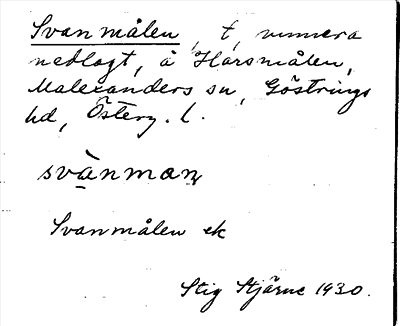 Svanmålen, t, numera
nedlagt, å Harsmålen,
Malexanders sn, Göstrings
hd, Österg. l.
svànman
Svanmålen ek
Stig Stjärne 1930.